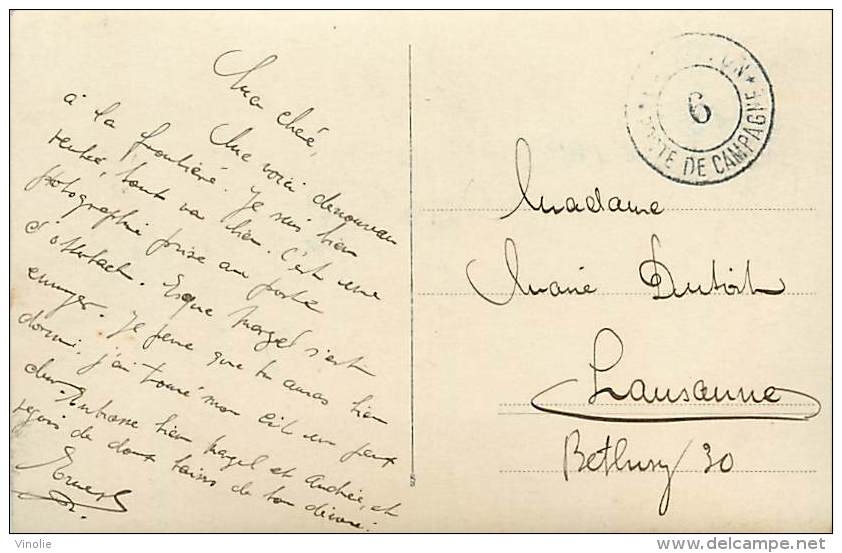 Ma chérie,
Me voici denouveau
à la frontière. Je suis bien
rentré, tout va bien. C'est une
photographie prise au poste
d'
Marcel s'est
ennuyé. Je pense que tu auras bien
dormi, j'ai trouvé mon lit un peux
dur. Embrasse bien Marcel et Andrée, et
reçois de doux baisers de ton dévoué.
Ernest
6
POSTE DE CAMPAGNE
Madame
Marie Dutoit
Lausanne
Bethusy 30
Vinolie
delcampe.net